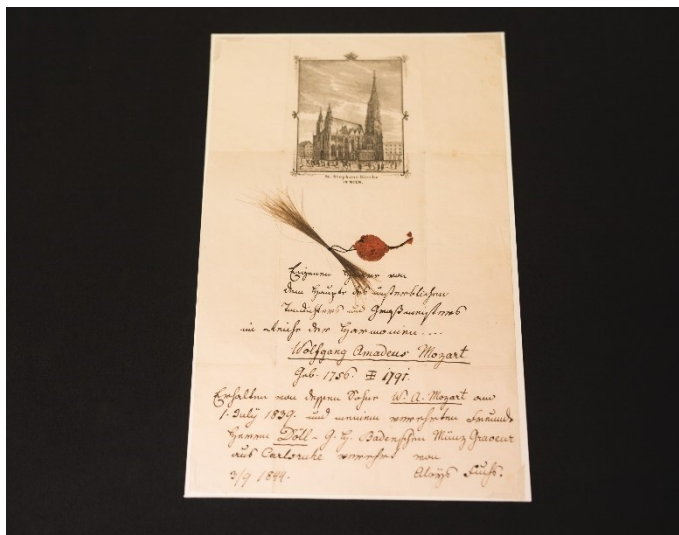 St. Stephans Kirche
IN WIEN.
Eigenen Haare von
dem Haupte des unsterblichen
Tondichters und Großmeisters
im Reiche der Harmonien....
Wolfgang Amadeus Mozart
Geb. 1756. 1791.
Erhalten von dessen Sohne W. A. Mozart am
1. July 1839. und meinem verehrten Freunde
Herrn Döll - G. H. Badenschen Münz Graveur
aus Carlsruhe verehrt von
3/9 1844. Aloys Fuchs.